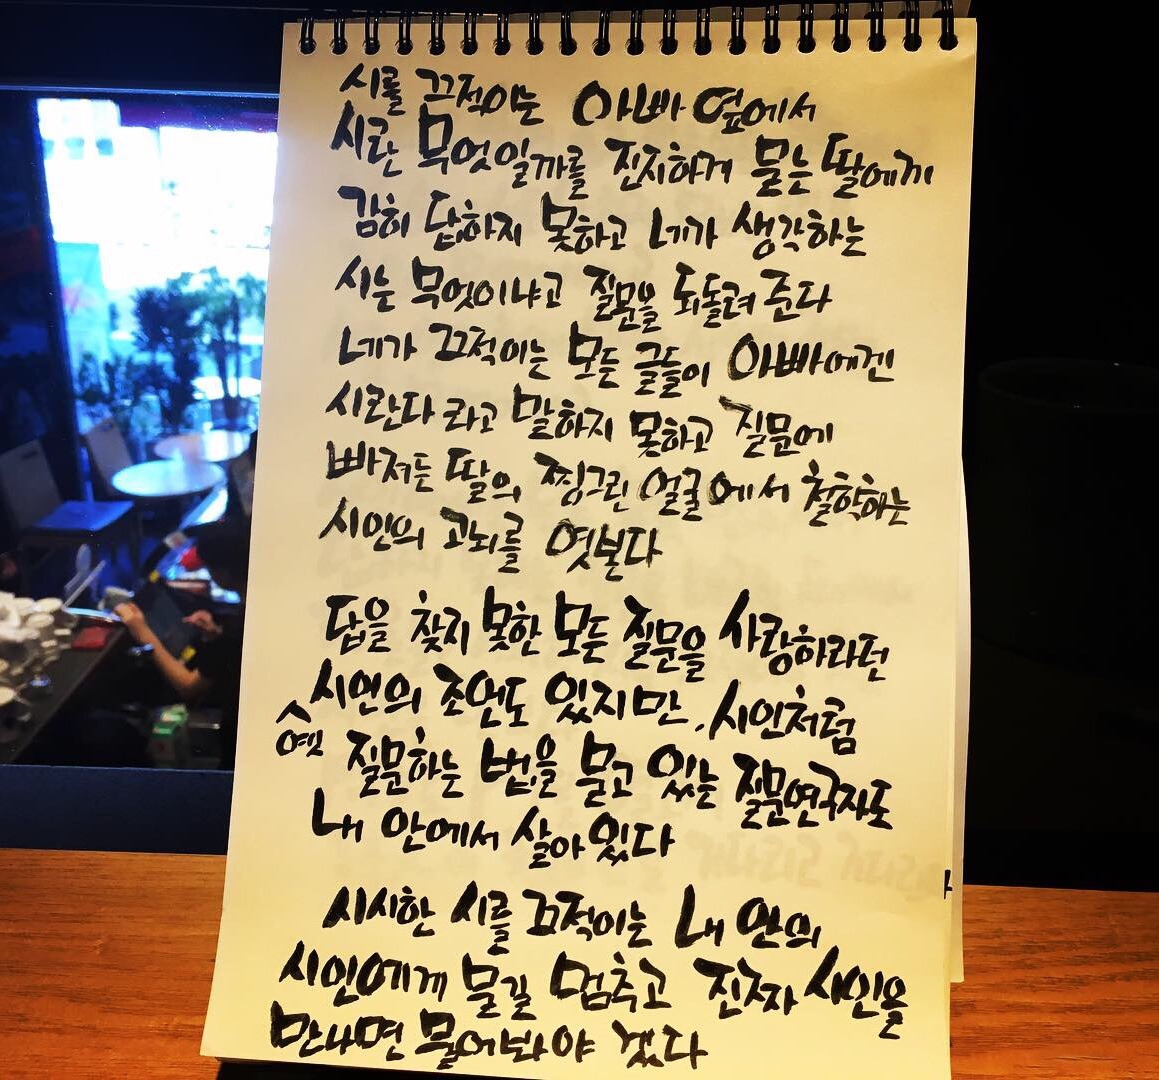 시를 끄적이는 아빠 옆에서
시란 무엇일까를 진지하게 묻는 딸에게
감히 답하지 못하고 네가 생각하는
시는 무엇이냐고 질문을 되돌려 준다
네가 끄적이는 모든 글들이 아빠에겐
시란다 라고 말하지 못하고 질문에
빠져든 딸의 찡그린 얼굴에서 철학하는
시인의 고뇌를 엿본다
답을 찾지 못한 모든 질문을 사랑하라던
옛 시인의 조언도 있지만, 시인처럼
질문하는 법을 묻고 있는 질문연구자도
내 안에서 살아있다
시시한 시를 끄적이는 내 안의
시인에게 묻길 멈추고 진짜 시인을
만나면 물어봐야 겠다